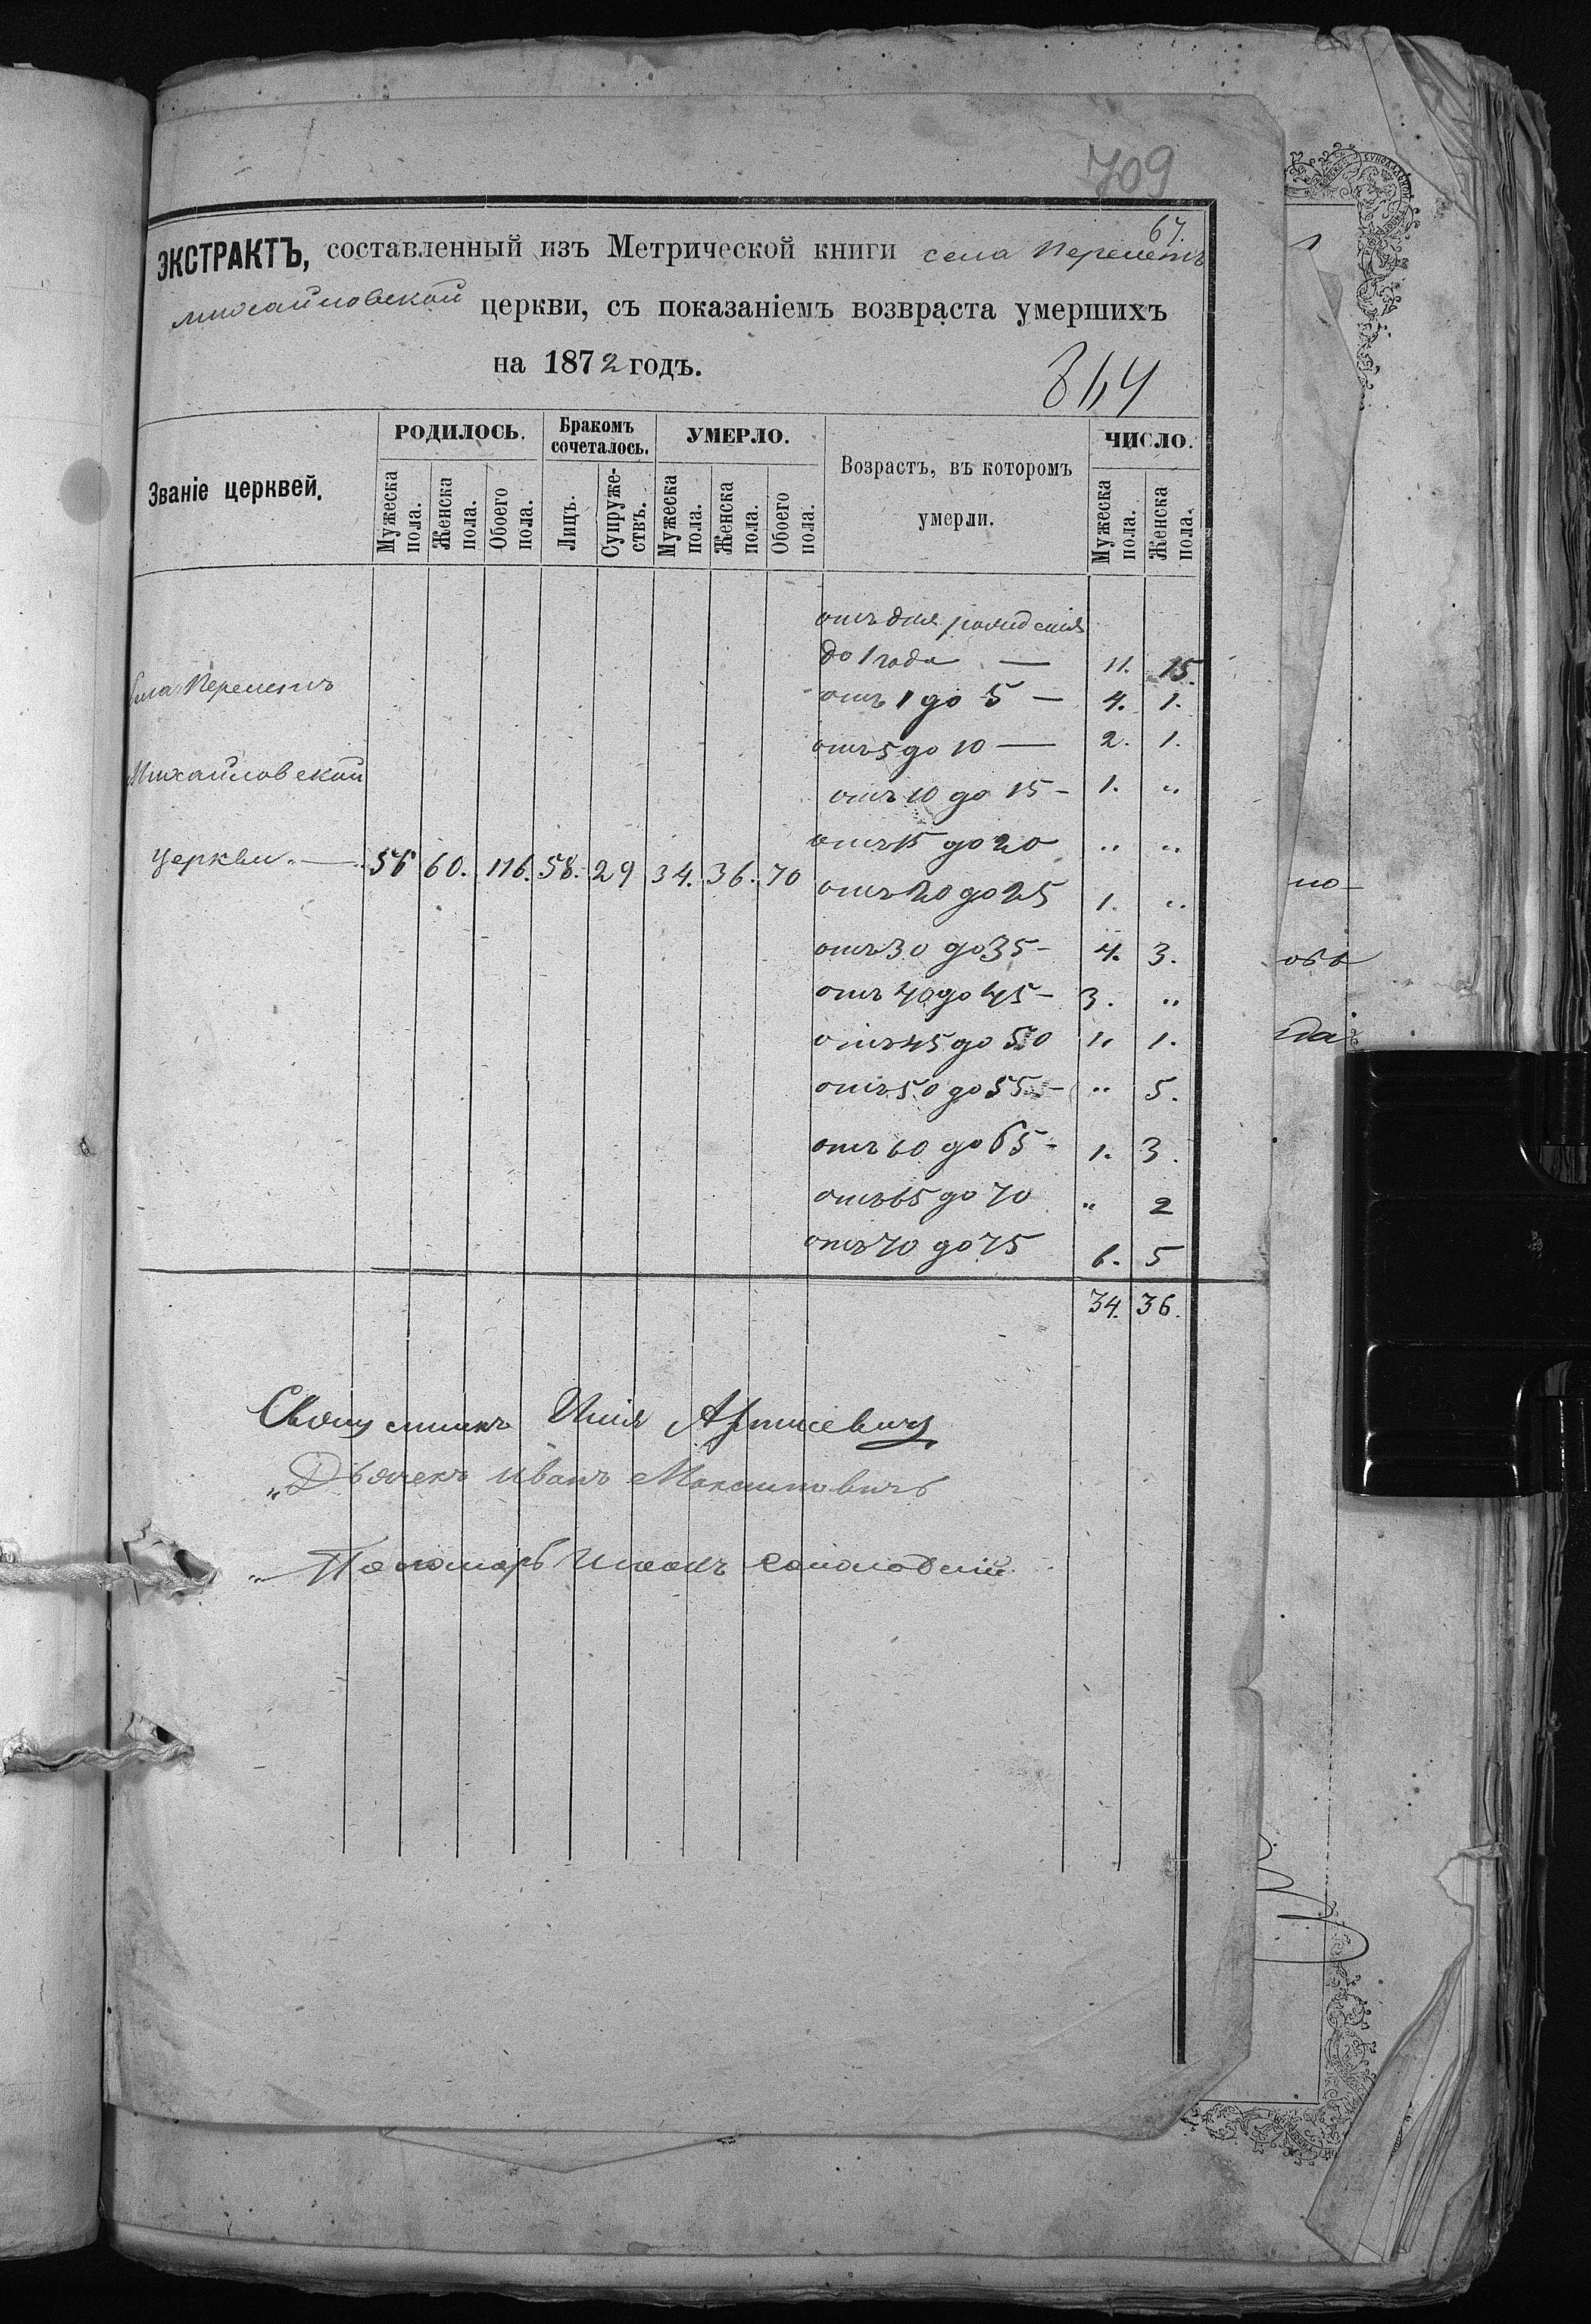 709
67.
ЭКСТРАКТЪ, составленный изъ Метрической книги села Перелетъ
михайловской церкви, съ показаніемъ возвраста умершихъ
на 1872 годъ.
Званіе церквей.
РОДИЛОСЬ.
Бракомъ сочеталось.
УМЕРЛО.
Возрастъ, въ которомъ умерли.
ЧИСЛО.
Мужеска пола.
Женска пола.
Обоего пола.
Лицъ.
Супруже-ствъ.
Мужеска пола.
Женска пола.
Обоего пола.
Мужеска пола.
Женска пола.
отъ дня рожденія
до 1 года — 11. 15.
Села Перелетъ
отъ 1 до 5 — 4. 1.
отъ 5 до 10 — 2. 1.
Михайловской
отъ 10 до 15 - 1. "
отъ 15 до 20 " "
церкви. — 56 60. 116. 58. 29 34. 36. 70
отъ 20 до 25 1. "
отъ 30 до 35 - 4. 3.
отъ 40 до 45 - 3. "
отъ 45 до 50 1. 1.
отъ 50 до 55 - " 5.
отъ 60 до 65 - 1. 3.
отъ 65 до 70 " 2
отъ 70 до 75 6. 5
34. 36.
Священникъ
"Дьячекъ Иванъ Максимовичъ
"Пономарь